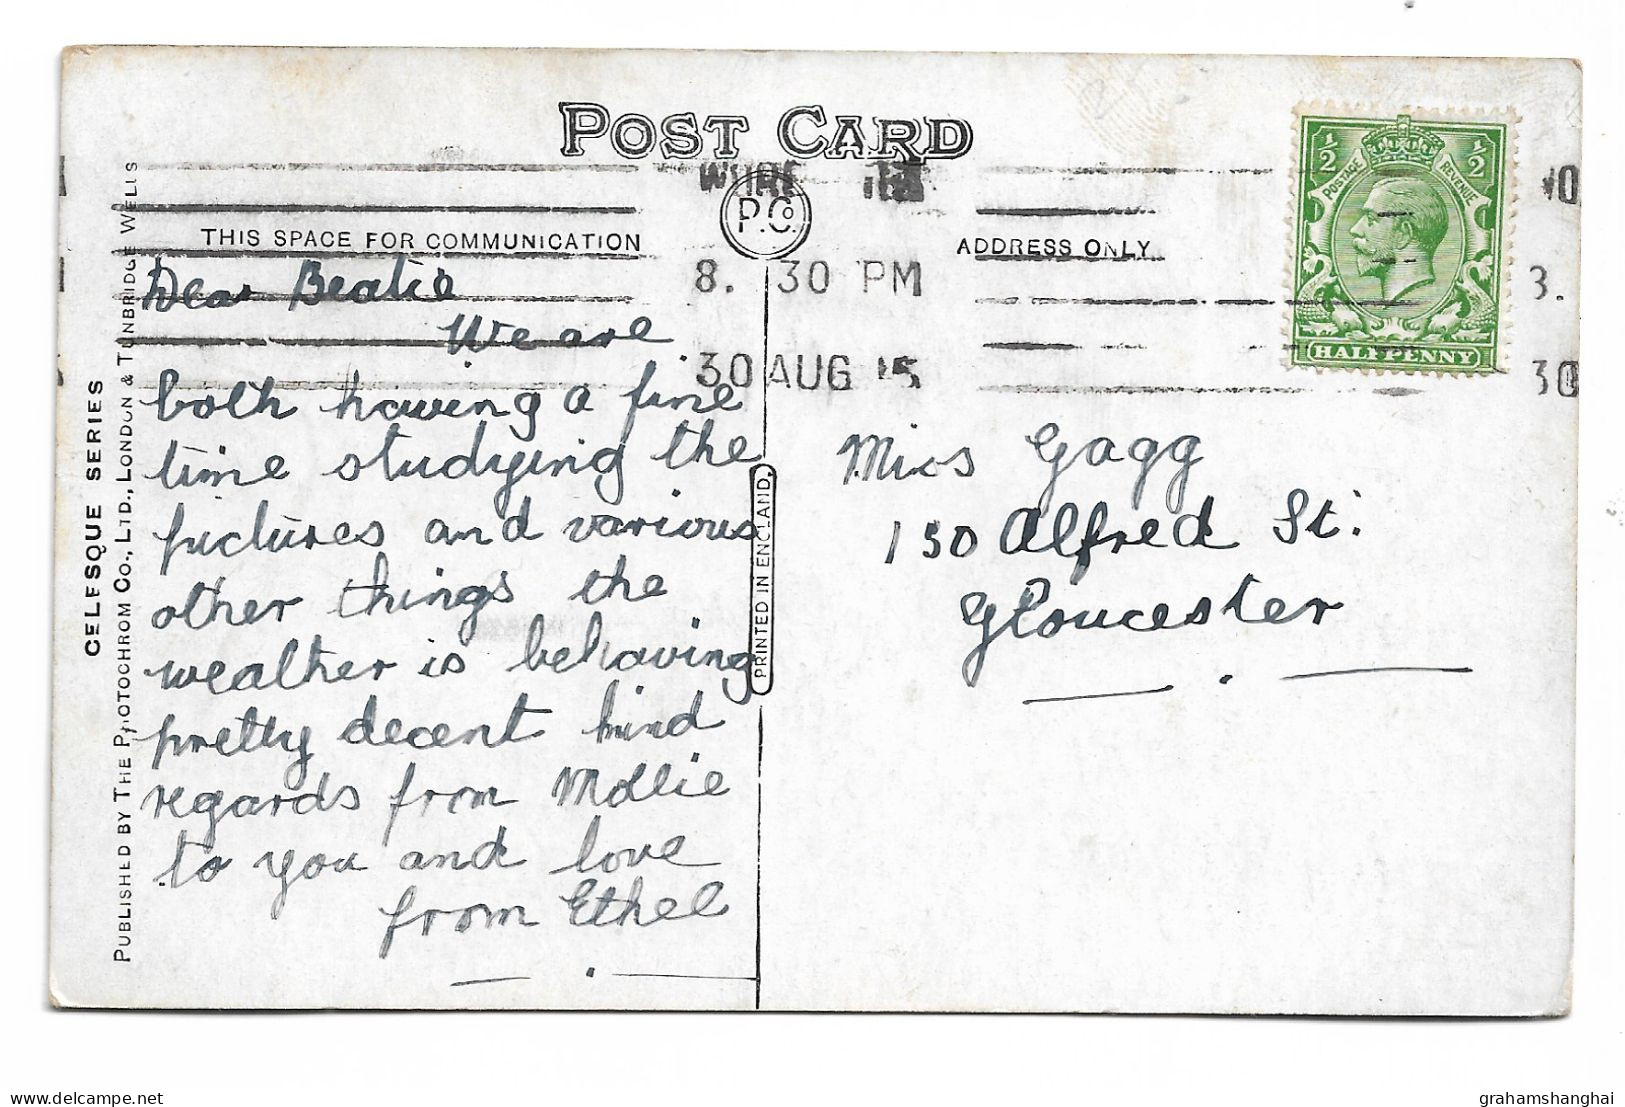 POST CARD
P.Co.
THIS SPACE FOR COMMUNICATION
ADDRESS ONLY
8. 30 PM
30 AUG 15
3.
30
½ ½
POSTAGE REVENUE
HALFPENNY
Dear Beatie
We are
both having a fine
time studying the
pictures and various
other things the
weather is behaving
pretty decent kind
regards from Mollie
to you and love
from Ethel
Miss Gagg
130 Alfred St.
Gloucester
CELESQUE SERIES
PUBLISHED BY THE PHOTOCHROM CO., LTD., LONDON & TUNBRIDGE WELLS
PRINTED IN ENGLAND.
delcampe.net
grahamshanghai